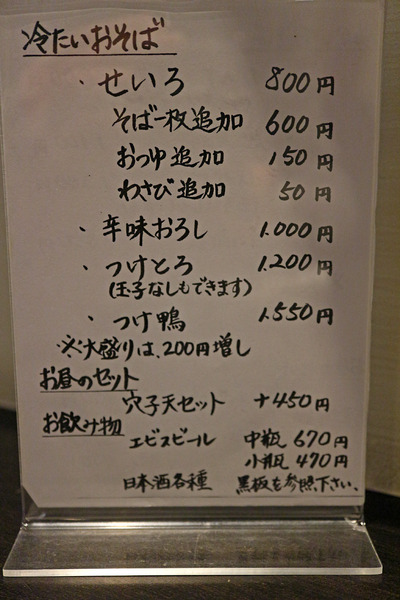 冷たいおそば
・せいろ 800円
そば一枚追加 600円
おつゆ追加 150円
わさび追加 50円
・辛味おろし 1.000円
・つけとろ 1.200円
(玉子なしもできます)
・つけ鴨 1.550円
※大盛りは、200円増し
お昼のセット
穴子天セット +450円
お飲み物
エビスビール 中瓶 670円
小瓶 470円
日本酒各種 黒板を参照下さい、